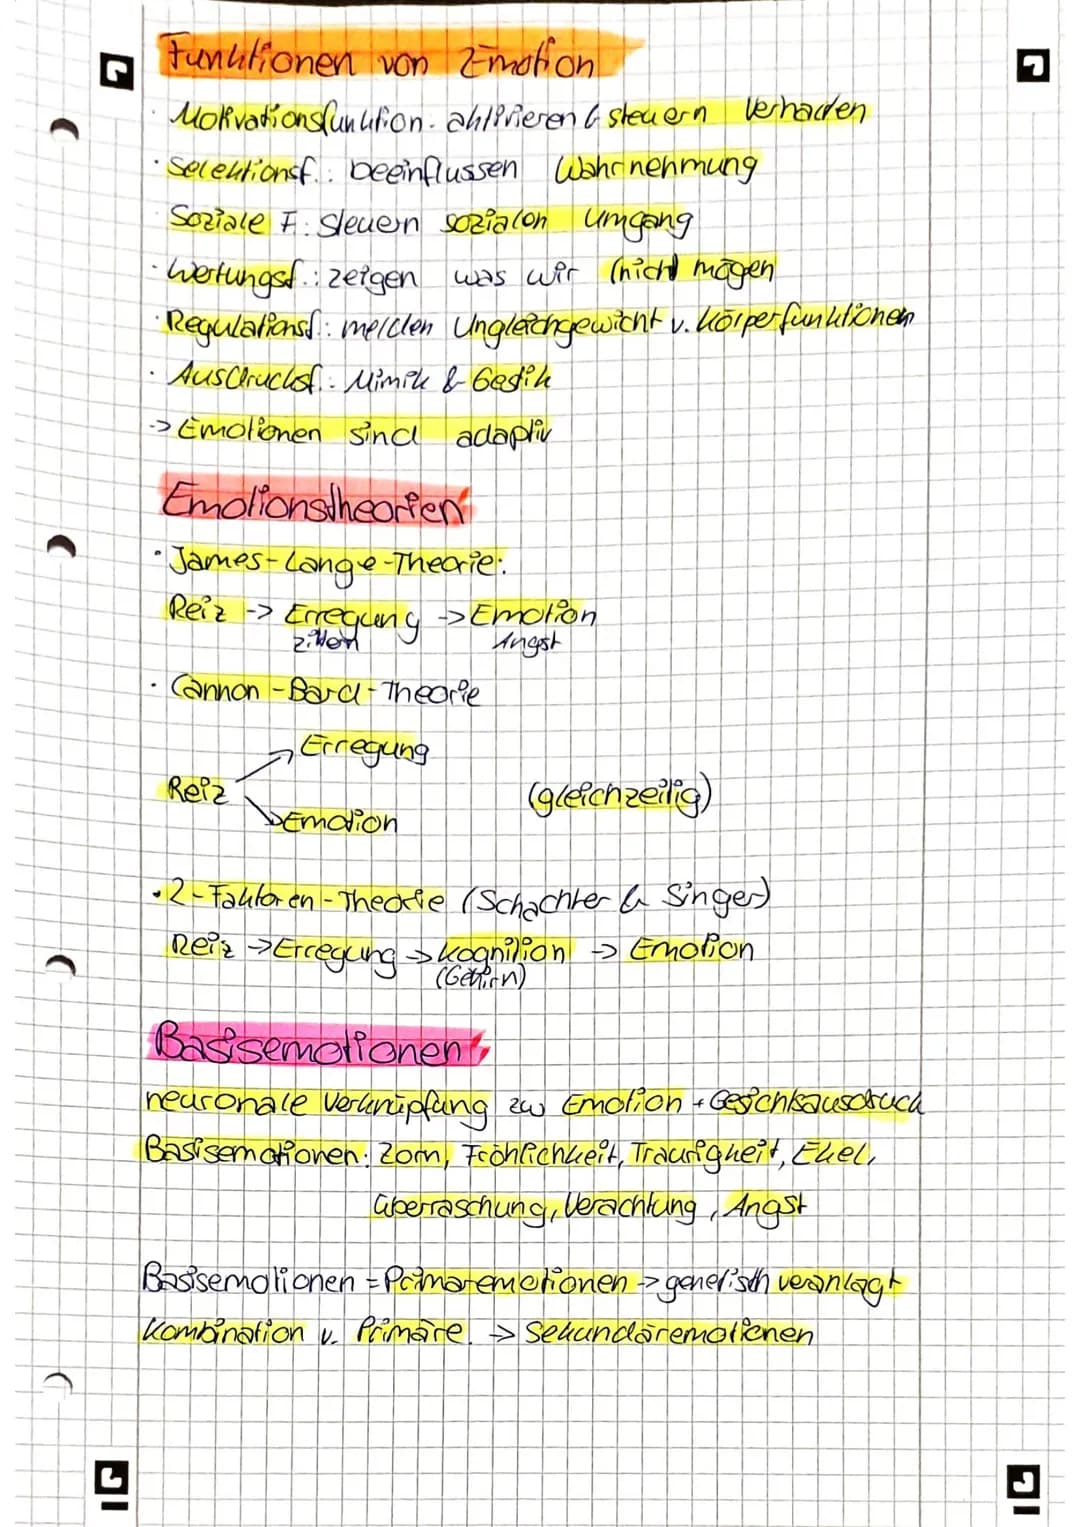 Funktionen von Emotion
· Motivationsfunktion: aktivieren & steuern Verhalten
· Selektionsf.: beeinflussen Wahrnehmung
Soziale F.: steuern sozialen Umgang
· Wertungsf.: zeigen was wir (nicht) mögen
· Regulationsf.: melden Ungleichgewicht v. Körperfunktionen
· Ausdrucksf.: Mimik & Gestik
-> Emotionen sind adaptiv
Emotionstheorien
· James-Lange-Theorie:
Reiz -> Erregung -> Emotion
zittern Angst
· Cannon-Bard-Theorie
Erregung
Reiz (gleichzeitig)
Emotion
· 2-Faktoren-Theorie (Schachter & Singer)
Reiz -> Erregung -> Kognition -> Emotion
(Gehirn)
Basisemotionen
neuronale Verknüpfung zw Emotion + Gesichtsausdruck
Basisemotionen: Zorn, Fröhlichkeit, Traurigkeit, Ekel,
Überraschung, Verachtung, Angst
Basisemotionen = Primäremotionen -> genetisch veranlagt
Kombination v. Primäre. -> Sekundäremotionen